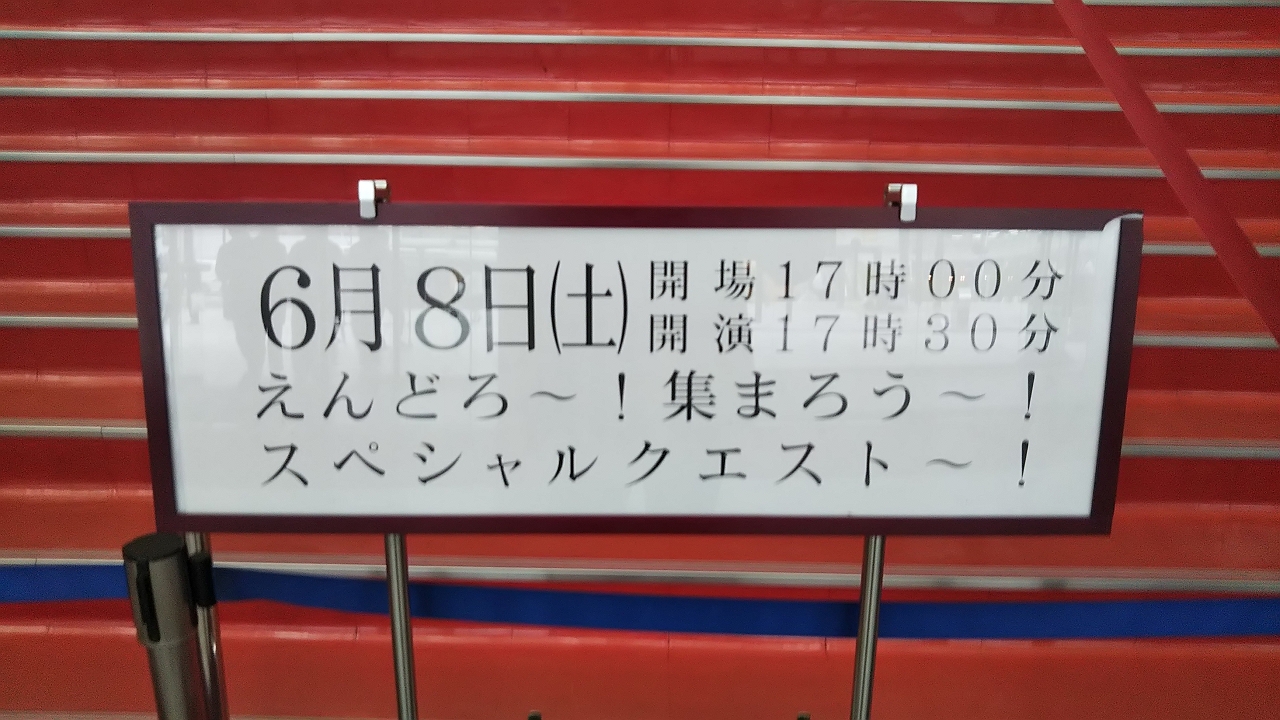 6月8日(土) 開場17時00分
開演17時30分
えんどろ～！集まろう～！
スペシャルクエスト～！